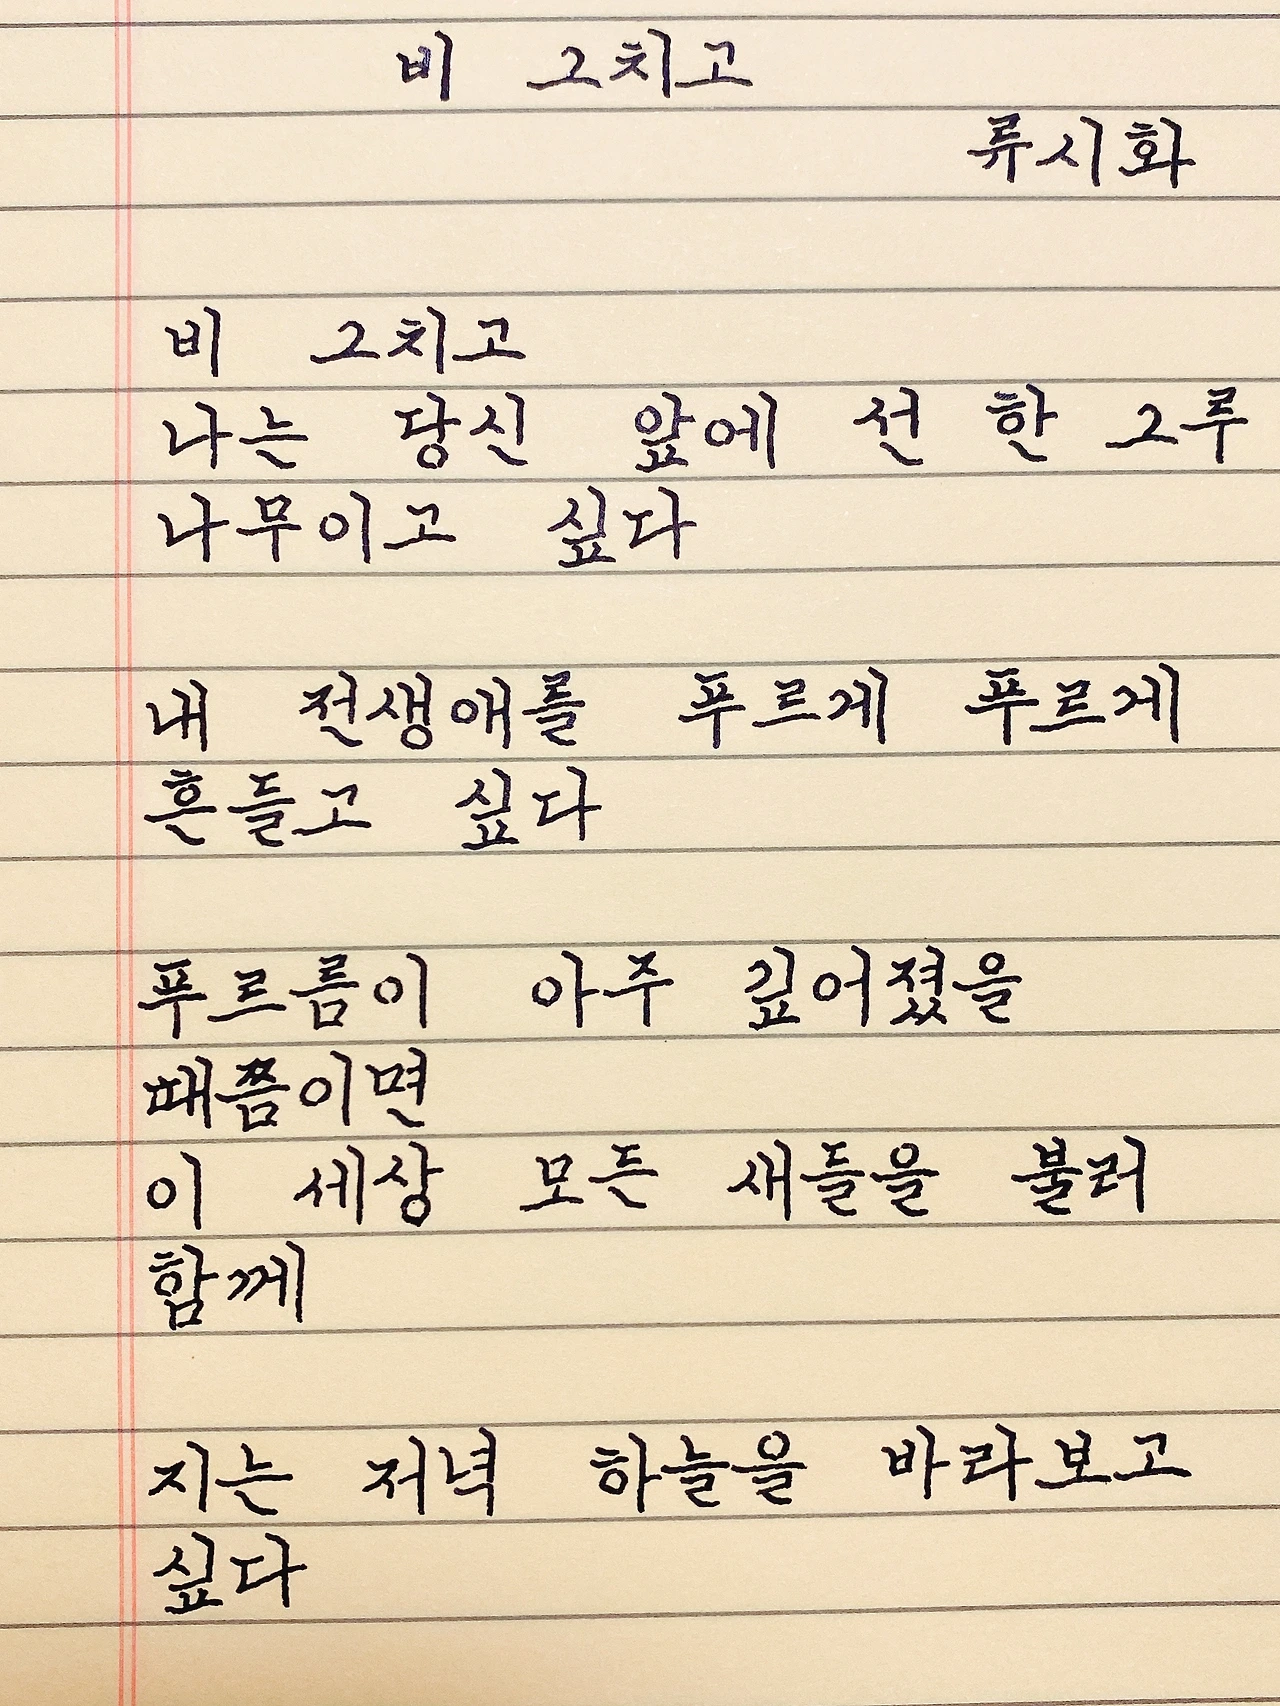 비 그치고
류시화
비 그치고
나는 당신 앞에 선 한 그루
나무이고 싶다
내 전생애를 푸르게 푸르게
흔들고 싶다
푸르름이 아주 깊어졌을
때쯤이면
이 세상 모든 새들을 불러
함께
지는 저녁 하늘을 바라보고
싶다